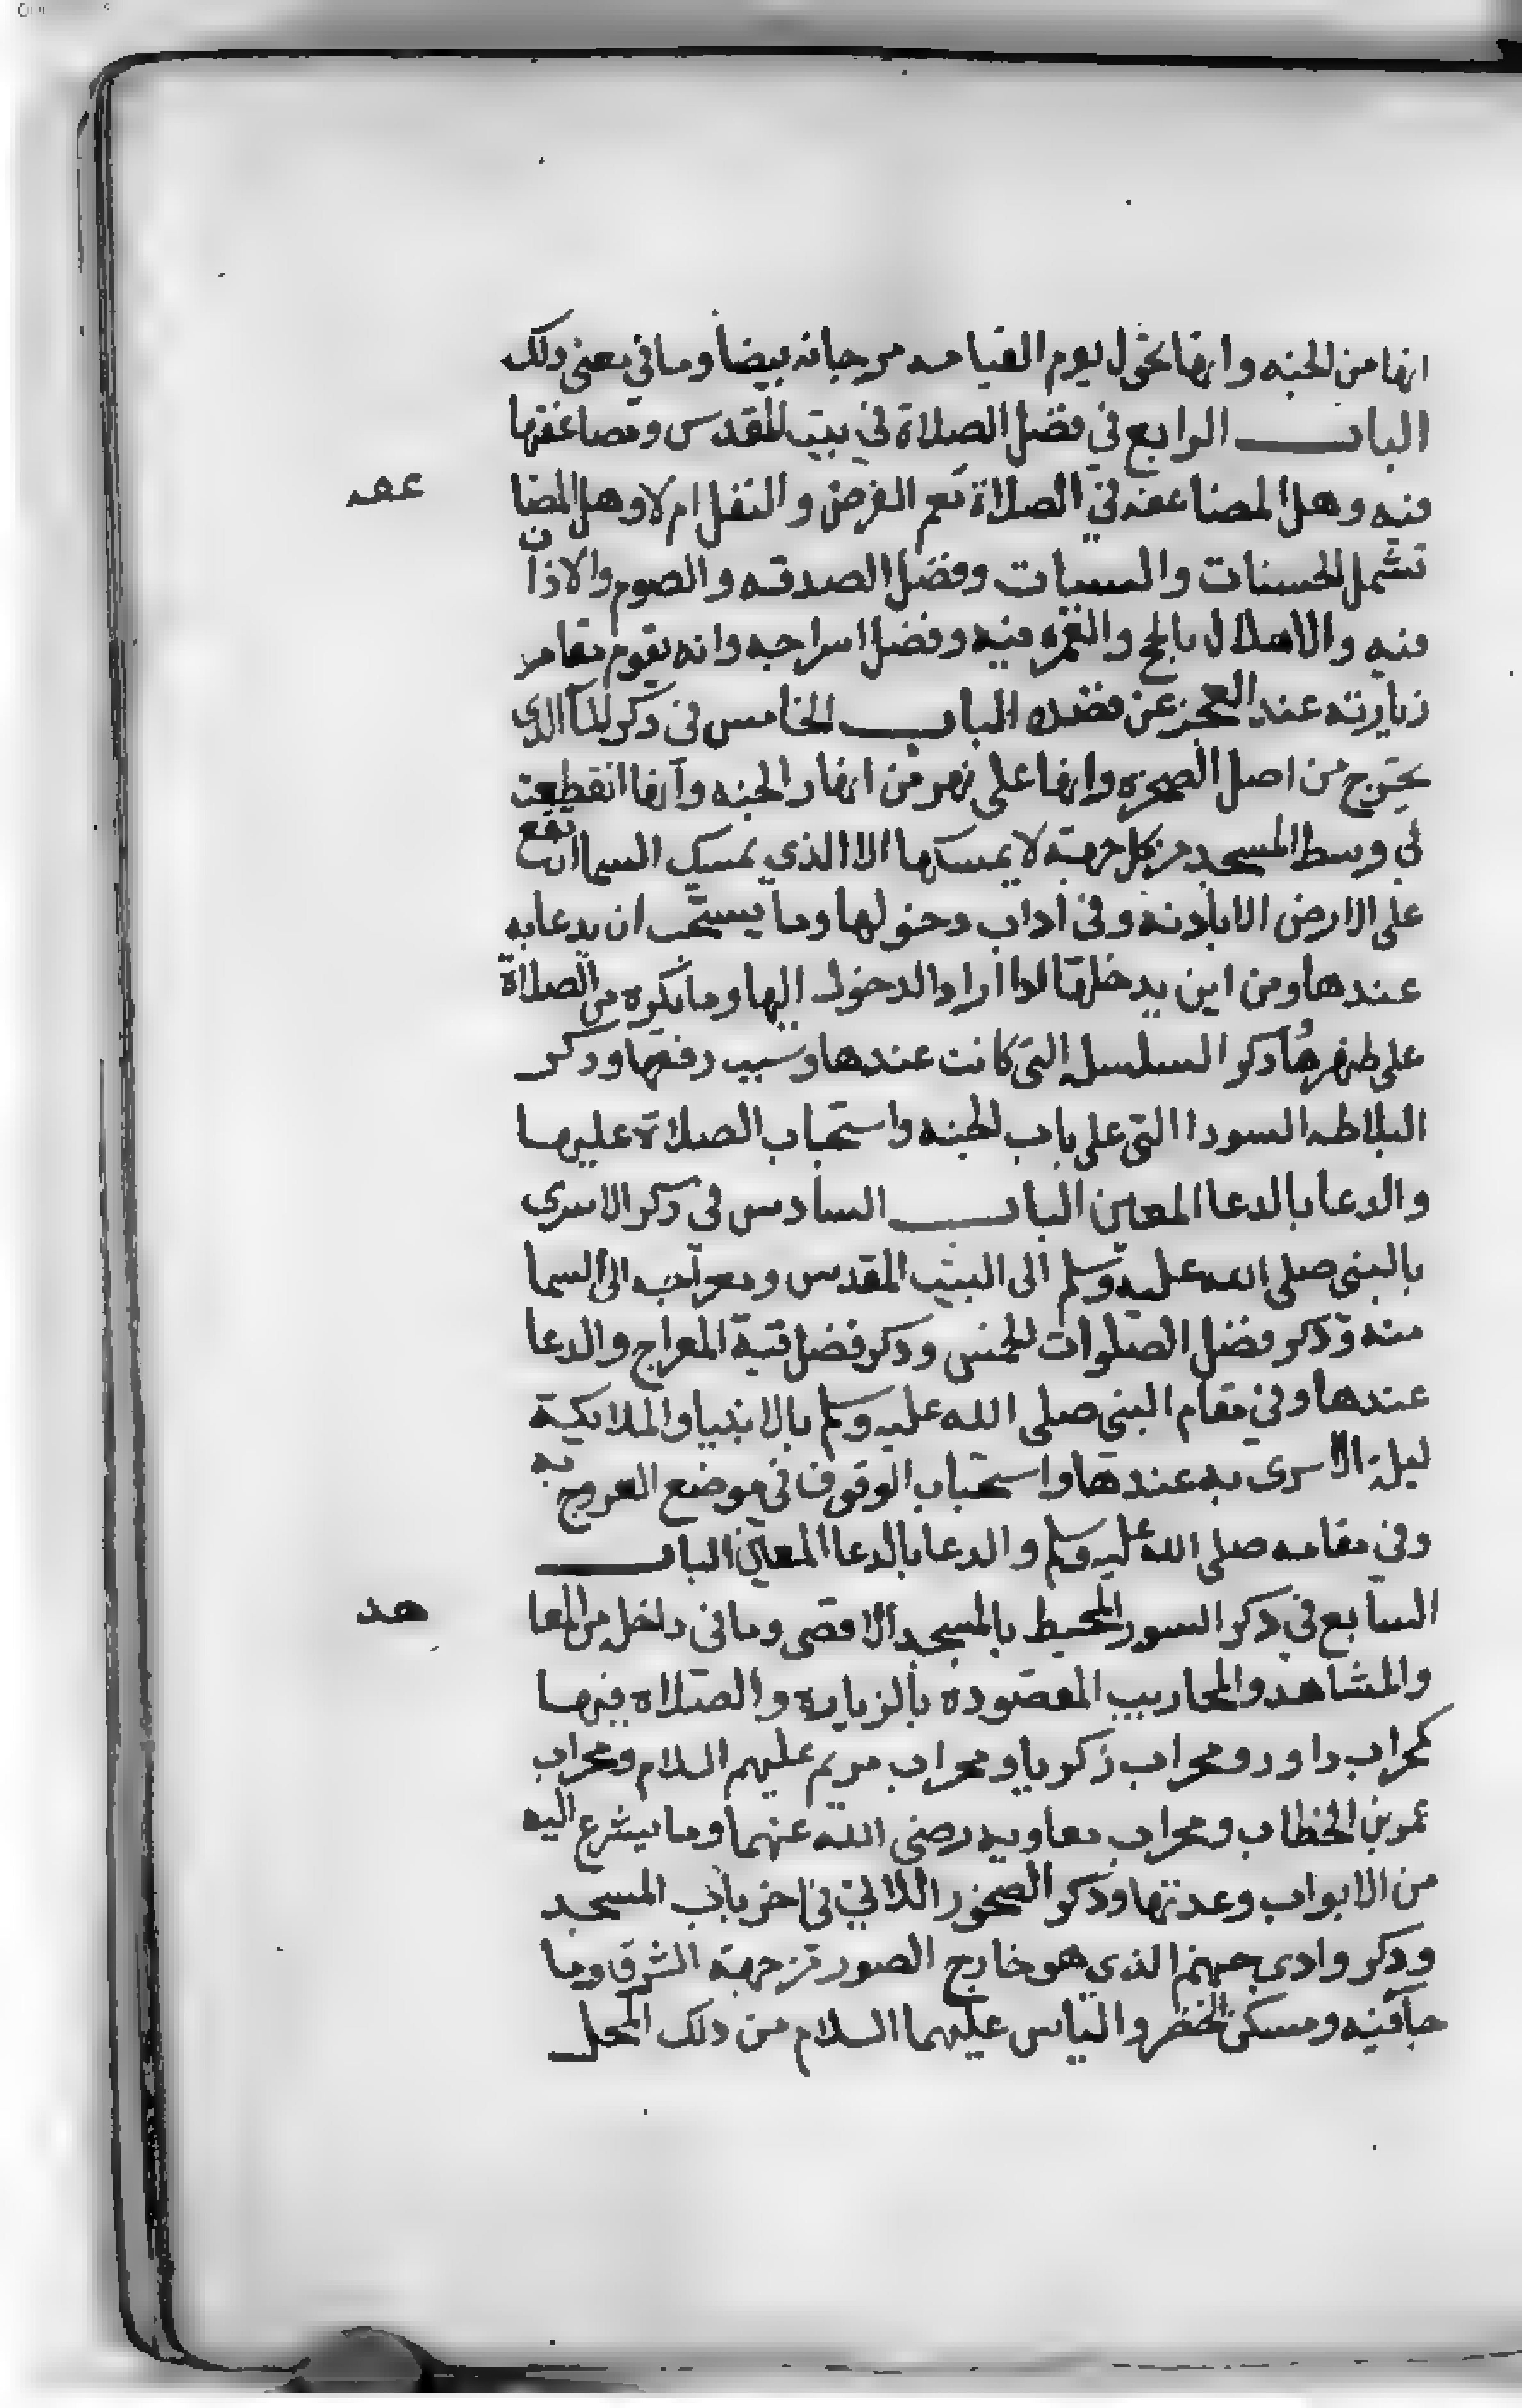 انها من الجنه وانها تحول يوم القيامه مرجانه بيضا وما في معنى دلك
الباب الرابع في فضل الصلاة في بيت المقدس ومضاعفتها
فيه وهل المضاعفه في الصلاة تعم الفرض والنفل ام لا وهل المضا
عفه
تشمل الحسنات والسيات وفضل الصدقه والصوم والاذان
فيه والاهلال بالحج والعمره فيه وفضل اسراجه وانه يقوم مقام
زيارته عند العجز عن قصده الباب الخامس في ذكر الما الدي
يخرج من اصل الصخره وانها على نهر من انهار الجنه وانها انقطعت
في وسط المسجد من كل جهة لا يمسكها الا الذي يمسك السما ان تقع
على الارض الا باذنه وفي اداب دخولها وما يستحب ان يدعا به
عندها ومن اين يدخلها اذا اراد الدخول اليها وما يكره من الصلاة
على ظهرها وذكر السلسله التي كانت عندها وسبب رفعها وذكر
البلاطه السودا التي على باب الجنه واستحباب الصلاة عليها
والدعا بالدعا المعين الباب السادس في ذكر الاسرى
بالنبي صلى الله عليه وسلم الى البيت المقدس ومعراجه الى السما
منه وذكر فضل الصلوات الخمس وذكر فضل قبة المعراج والدعا
عندها وفي مقام النبي صلى الله عليه وسلم بالانبيا والملايكة
ليلة الاسرى به عندها واستحباب الوقوف في موضع العروج به
وفي مقامه صلى الله عليه وسلم والدعا بالدعا المعين الباب
السابع في ذكر السور المحيط بالمسجد الاقصى وما في داخله من المعا
هد
والمشاهد والمحاريب المقصوده بالزياره والصلاه فيها
كمحراب داورد ومحراب زكريا ومحراب مريم عليهم السلام ومحراب
عمر بن الخطاب ومحراب معاويه رضي الله عنهما وما يشرع اليه
من الابواب وعدتها وذكر الصخور اللاتي في اخريات المسجد
وذكر وادي جهنم الذي هو خارج الصور من جهة الشرق وما
جا فيه ومسكن الخضر والياس عليهما السلام من دلك المحل